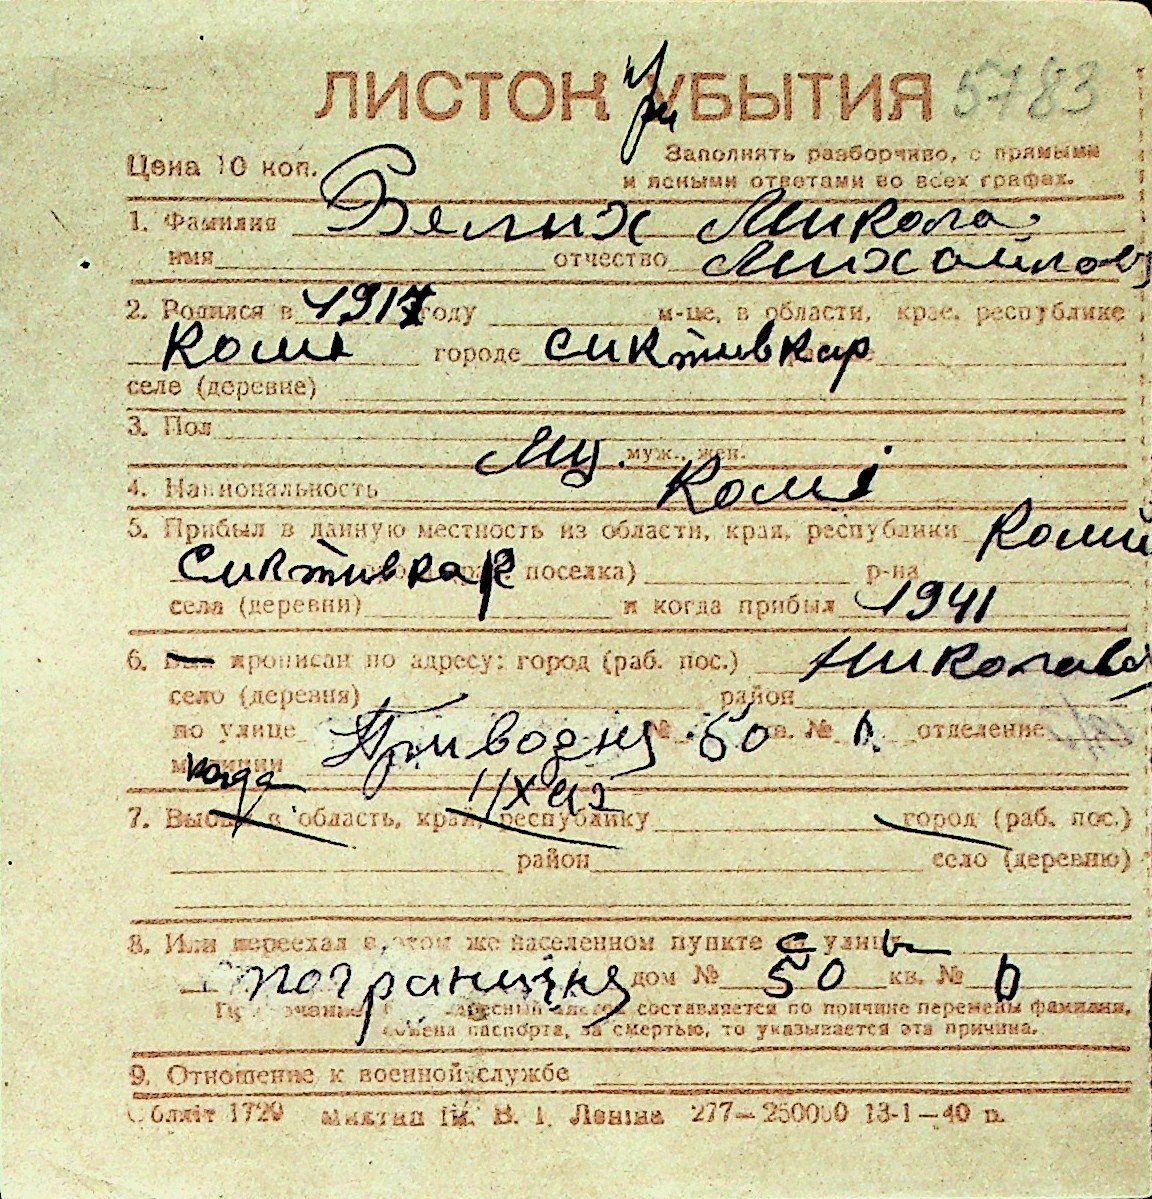 ЛИСТОК УБЫТИЯ 5783
при
Цена 10 коп. Заполнять разборчиво, с прямыми
и ясными ответами во всех графах.
1. Фамилия Белих Микола
имя отчество Михайлов
2. Родился в 1917 году м-це, в области, крае, республике
Комі городе Сиктивкар
селе (деревне)
3. Пол
Муж. муж., жен.
4. Национальность Комі
5. Прибыл в данную местность из области, края, республики Комий
Сиктивкар поселка) р-на
села (деревни) и когда прибыл 1941
6. Был прописан по адресу: город (раб. пос.) Николаев
село (деревня) район
по улице Приводня № 50 кв. № отделение
милиции
когда 1/X 42
7. Выбыл в область, край, республику город (раб. пос.)
район село (деревню)
8. Или переехал в этом же населенном пункте с улицы
погранична дом № 50 кв. № 0
Примечание. адресный листок составляется по причине перемены фамилии,
обмена паспорта, за смертью, то указывается эта причина.
9. Отношение к военной службе
Обліт 1729 Миктип ім. В. І. Леніна 277—250000 13-1—40 р.